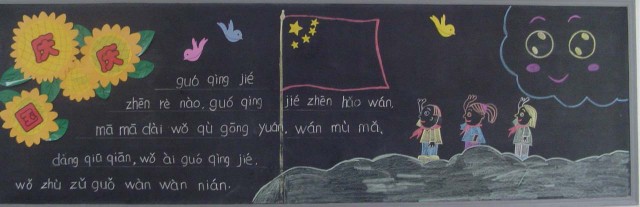 庆
庆
国
guó qìng jié
zhēn rè nào, guó qìng jié zhēn hǎo wán,
mā mā dài wǒ qù gōng yuán, wán mù mǎ,
dàng qiū qiān, wǒ ài guó qìng jié,
wǒ zhù zǔ guǒ wàn wàn nián.